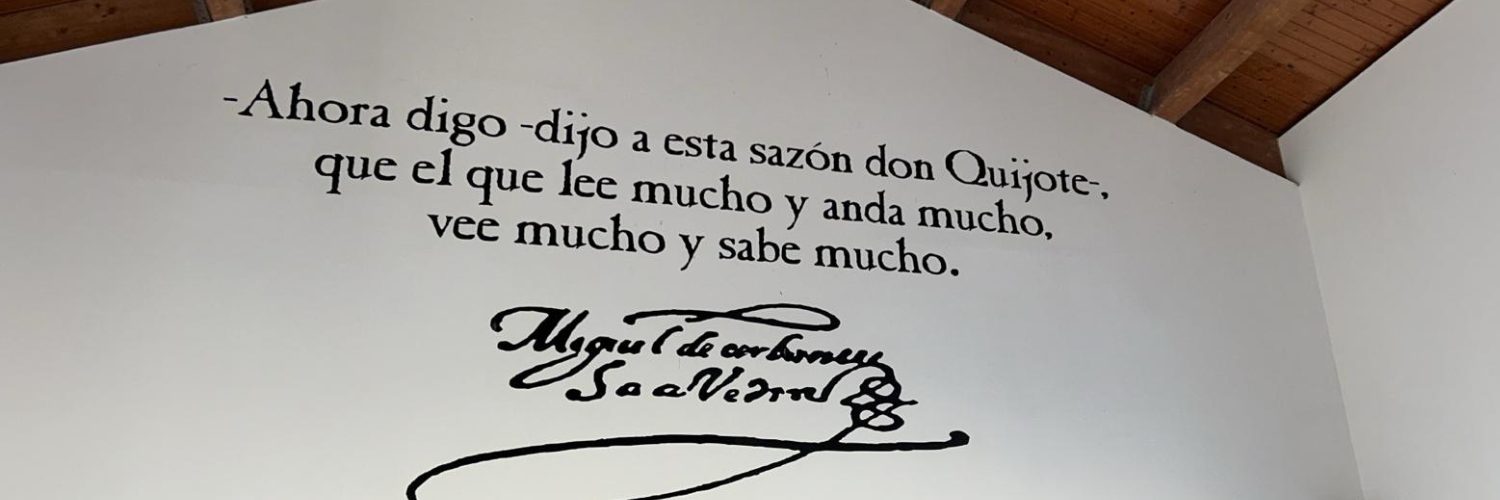 -Ahora digo -dijo a esta sazón don Quijote-,
que el que lee mucho y anda mucho,
vee mucho y sabe mucho.
Miguel de cerbantes
Saavedra